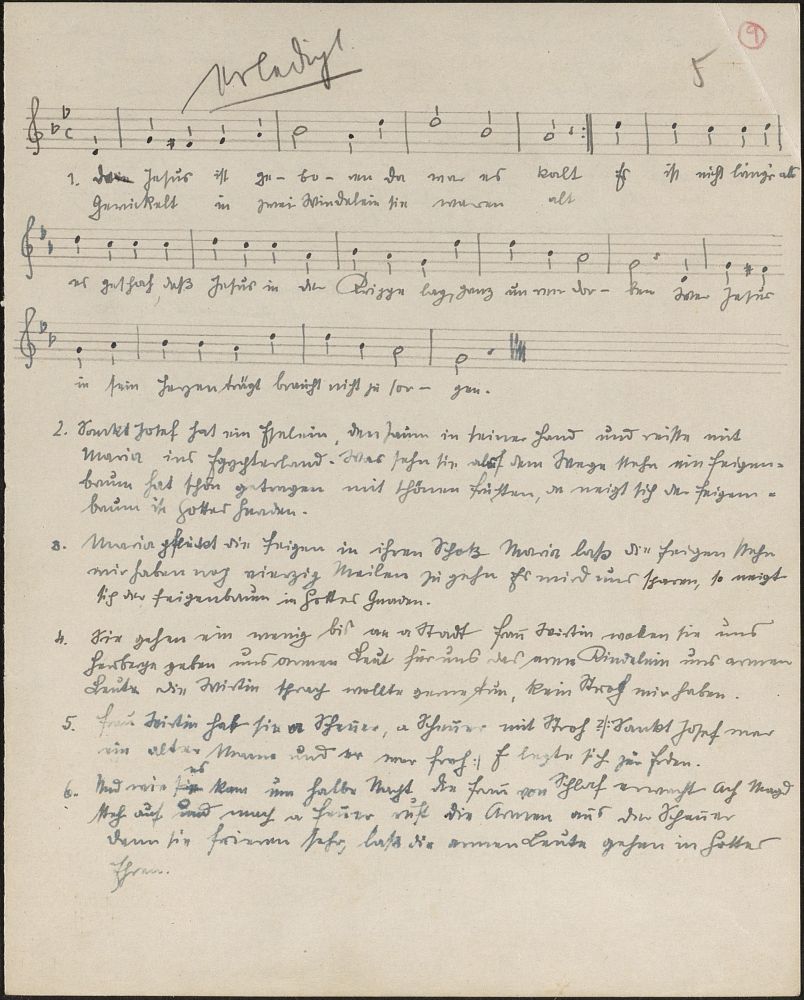 9
Erledigt.
5
C
1. Da Jesus ist ge- bo- ren da war es kalt Es ist nicht länger als
Gewickelt in zwei Windelein sie waren alt
es geschah, daß Jesus in der Krippe lag, ganz un ver dor- ben Wer Jesus
in sein Herzen trägt braucht nicht zu sor- gen.
2. Sankt Josef hat ein Eselein, den Zaum in seiner Hand und reiste mit
Maria ins Egypterland. Was sehn sie auf dem Wege stehn ein Feigen-
baum hat schön getragen mit schönen Früchten, da neigt sich der Feigen-
baum in Gottes Gnaden.
3. Maria pflückt die Feigen in ihren Schoß Maria laß die Feigen stehn
wir haben noch vierzig Meilen zu gehn Es wird uns sparen, so neigt
sich der Feigenbaum in Gottes Gnaden.
4. Sie gehen ein wenig bis an a Stadt Frau Wirtin wollen sie uns
Herberge geben uns armen Leut für uns das arme Kindelein uns armen
Leute die Wirtin sprach wollte gerne tun, kein Stroh wir haben.
5. Frau Wirtin hat sie a Scheuer, a Scheuer mit Stroh :/: Sankt Josef war
ein alter Mann und er war froh :/ E legte sich zur Erden.
6. Und wie es kam um halbe Nacht die Frau von Schlaf erwacht Ach Magd
steh auf und mach a Feuer ruft die Armen aus der Scheuer
denn sie frieren sehr, laßt die armen Leute gehen in Gottes
Ehren.